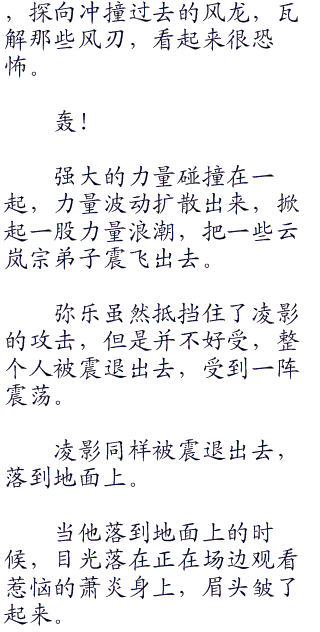 ，探向冲撞过去的风龙，瓦
解那些风刃，看起来很恐
怖。
轰！
强大的力量碰撞在一
起，力量波动扩散出来，掀
起一股力量浪潮，把一些云
岚宗弟子震飞出去。
弥乐虽然抵挡住了凌影
的攻击，但是并不好受，整
个人被震退出去，受到一阵
震荡。
凌影同样被震退出去，
落到地面上。
当他落到地面上的时
候，目光落在正在场边观看
惹恼的萧炎身上，眉头皱了
起来。